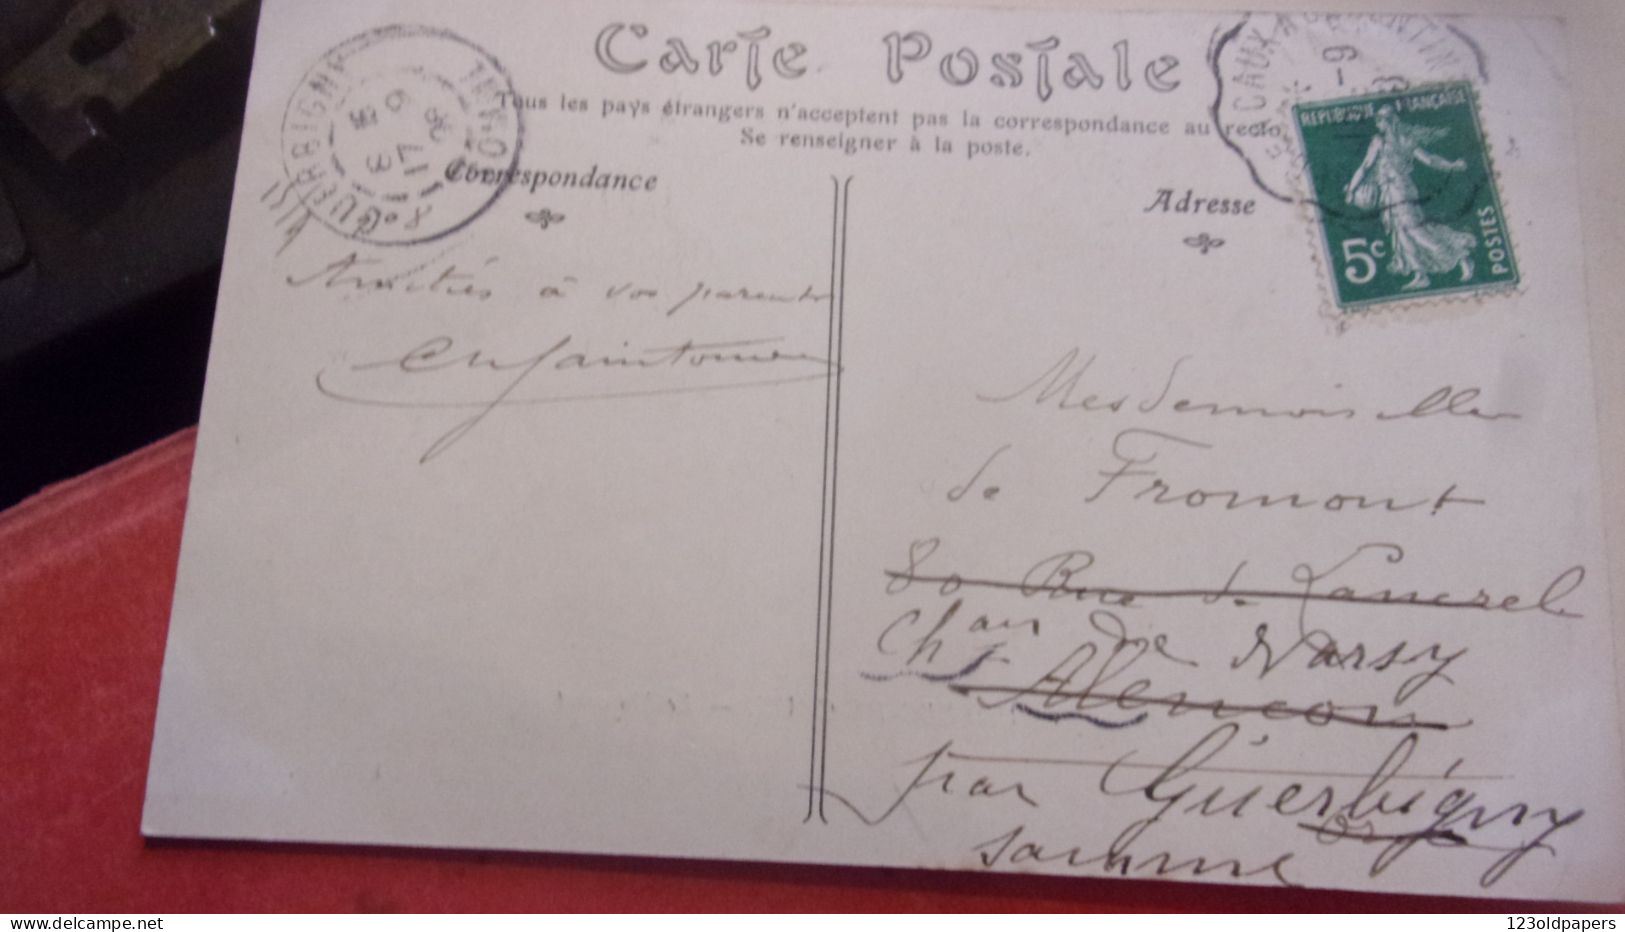 Carte Postale
Tous les pays étrangers n'acceptent pas la correspondance au recto.
Se renseigner à la poste.
Correspondance
Adresse
GUERBIGNY
17
REPUBLIQUE FRANÇAISE
5c
POSTES
Amitiés à vos parents
Mesdemoiselles
de Fromont
80 Rue de Lancrel
Chau de Warsy
Alencon
par Guerbigny
Somme
123oldpapers